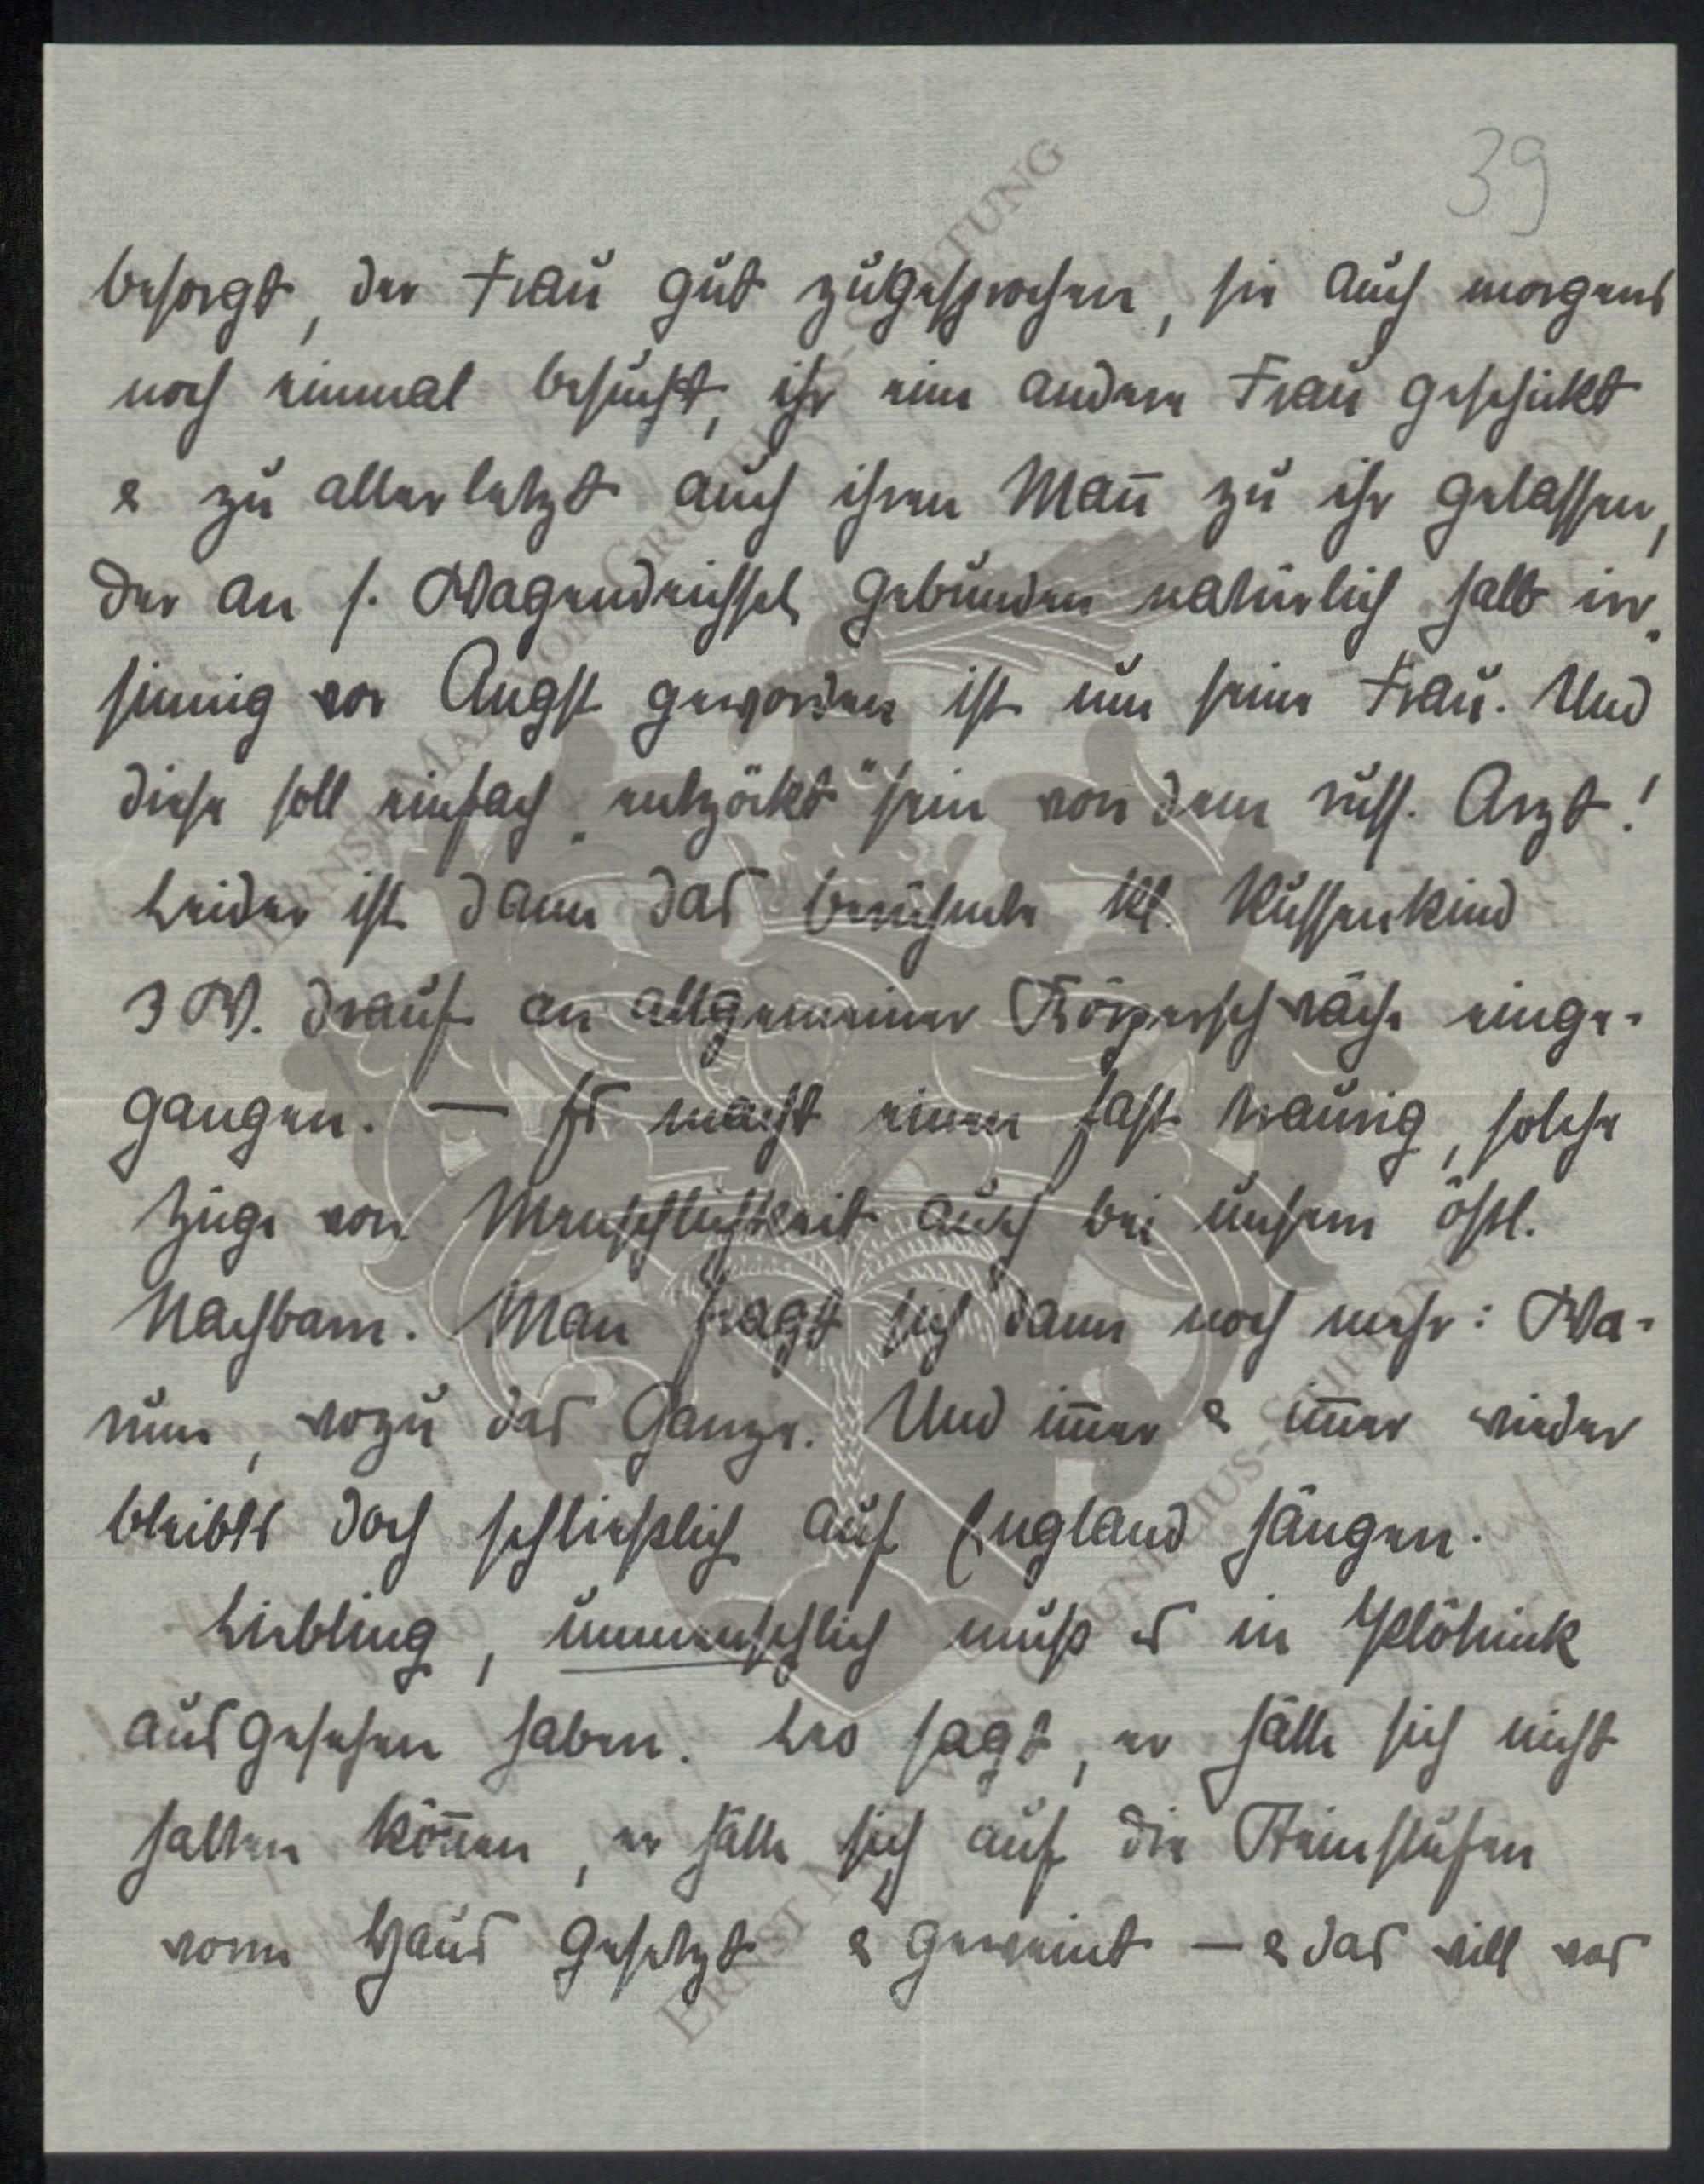 39
besorgt, der Frau gut zugesprochen, sie auch morgens
noch einmal besucht, ihr eine andere Frau geschickt
& zu allerletzt auch ihren Mañ zu ihr gelassen,
der an s. Wagendeichsel gebunden natürlich halb irr-
sinnig vor Angst geworden ist um seine Frau. Und
diese soll einfach „entzöckt" sein von dem russ. Arzt!
Leider ist dann das berühmte kl. Russenkind
3 W. drauf an allgemeiner Körperschwäche einge-
gangen. — Es macht einen fast traurig, solche
Züge von Menschlichkeit auch bei unsern östl.
Nachbarn. Man fragt sich dann noch mehr: Wa-
rum, wozu das Ganze. Und im̄er & im̄er wieder
bleibts doch schliesslich auf England hängen.
Liebling, unmenschlich muß es in
ausgesehen haben. Leo sagt, er hätte sich nicht
halten kön̄en, er hätte sich auf die Steinstufen
vorm Haus gesetzt & geweint — & das will was
ERNST MAX VON GRUNELIUS-STIFTUNG
ERNST MAX VON GRUNELIUS-STIFTUNG